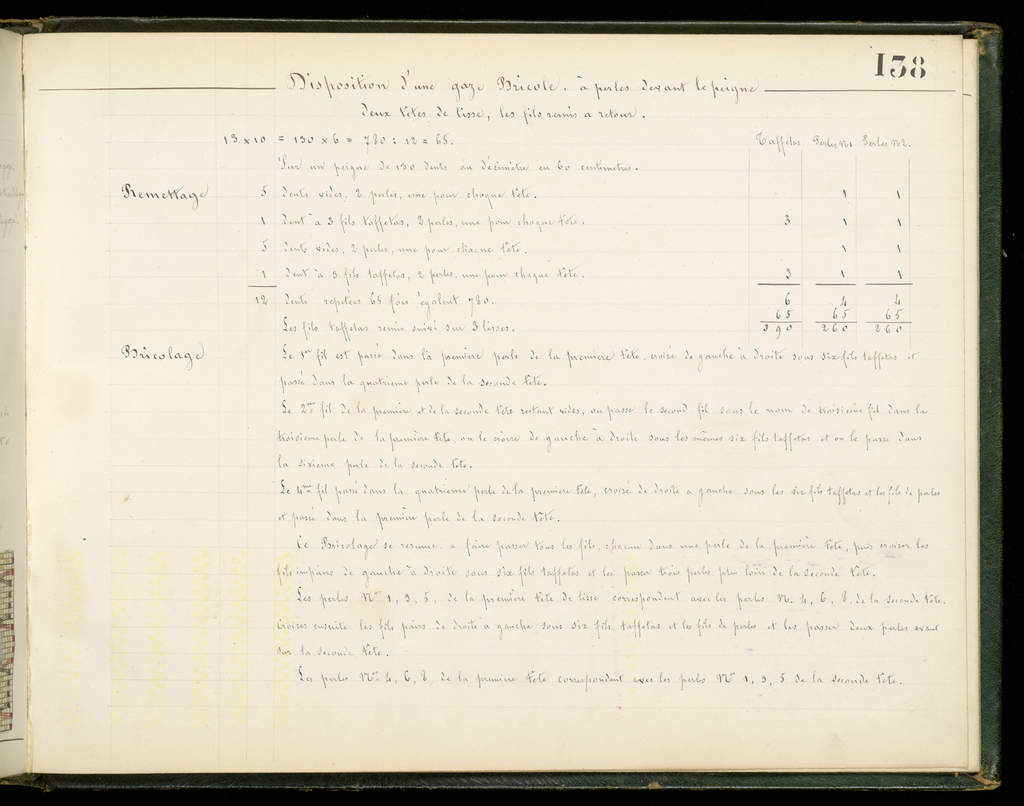 138
Disposition d'une gaze Bricole. à perles devant le peigne
deux têtes de lisse, les fils remis a retour.
13 x 10 = 130 x 6 = 780 : 12 = 65. Taffetas Perles N1 Perles N2.
Sur un peigne de 130 dents au décimètre en 60 centimetres.
Remettage 5 dents vides, 2 perles, une pour chaque tête. 1 1
1 dent à 3 fils taffetas, 2 perles, une pour chaque tête. 3 1 1
5 dents vides, 2 perles, une pour chaque tête. 1 1
1 dent à 3 fils taffetas, 2 perles, une pour chaque tête. 3 1 1
12 dents repetées 65 fois égalent 780. 6 4 4
65 65 65
Les fils taffetas remis suivi sur 3 lisses. 390 260 260
Bricolage Le 1er fil est passé dans la première perle de la premiere tête, croisé de gauche à droite sous six fils taffetas et
passé dans la quatrieme perle de la seconde tête.
Le 2me fil de la première et de la seconde tête restant vides, on passe le second fil sous le nom de troisieme fil dans la
troisieme perle de la première tête, on le croise de gauche à droite sous les mêmes six fils taffetas et on le passe dans
la sixieme perle de la seconde tête.
Le 4me fil passé dans la quatrieme perle de la premiere tête, croisé de droite a gauche sous les six fils taffetas et les fils de perles
et passé dans la première perle de la seconde tête.
Ce Bricolage se resume a faire passer tous les fils, chacun dans une perle de la première tête, puis croiser les
fils impairs de gauche à droite sous six fils taffetas et les passer trois perles plus loin de la seconde tête.
Les perles Nos 1, 3, 5, de la première tête de lisse correspondent avec les perles N. 4, 6, 8, de la seconde tête.
Croiser ensuite les fils pairs de droite a gauche sous six fils taffetas et les fils de perles et les passer deux perles avant
sur la seconde tête.
Les perles Nos 4, 6, 8, de la premiere tête correspondent avec les perles Nos 1, 3, 5 de la seconde tête.